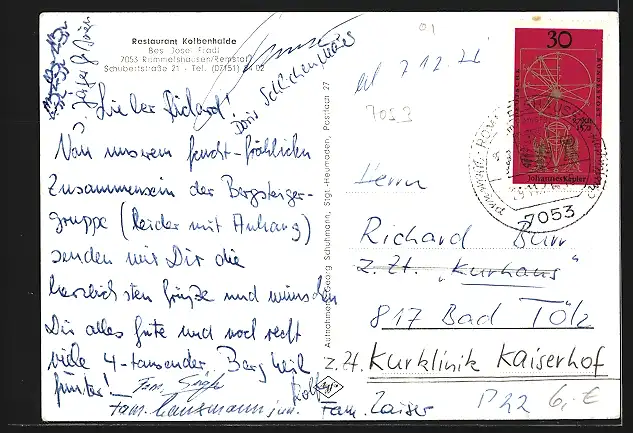 Restaurant Kolbenhalde
Bes. Josef Fradl
7053 Rommelshausen/Remstal
Schubertstraße 21 - Tel. (07151) 02
Doris Schlichenmaier
Lieber Richard!
Von unserem feucht-fröhlichen
Zusammensein der Bergsteiger-
gruppe (leider mit Anhang)
senden wir Dir die
herzlichsten Grüße und wünschen
Dir alles Gute und noch recht
viele 4-tausender Berg heil
Fam.
Fam. jun.
Aufnahme: Georg Schuhmann, Stgt.-Heumaden, Postfach 27
01
7053
30
Johannes Kepler
7053
Herrn
Richard Burr
z. Zt. „Kurhaus"
817 Bad Tölz
z. Zt. Kurklinik Kaiserhof
Fam. Zaiser
6,- €